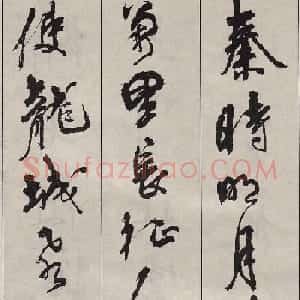 秦時明月
萬里長征人
使龍城飛
Shufazitao.com